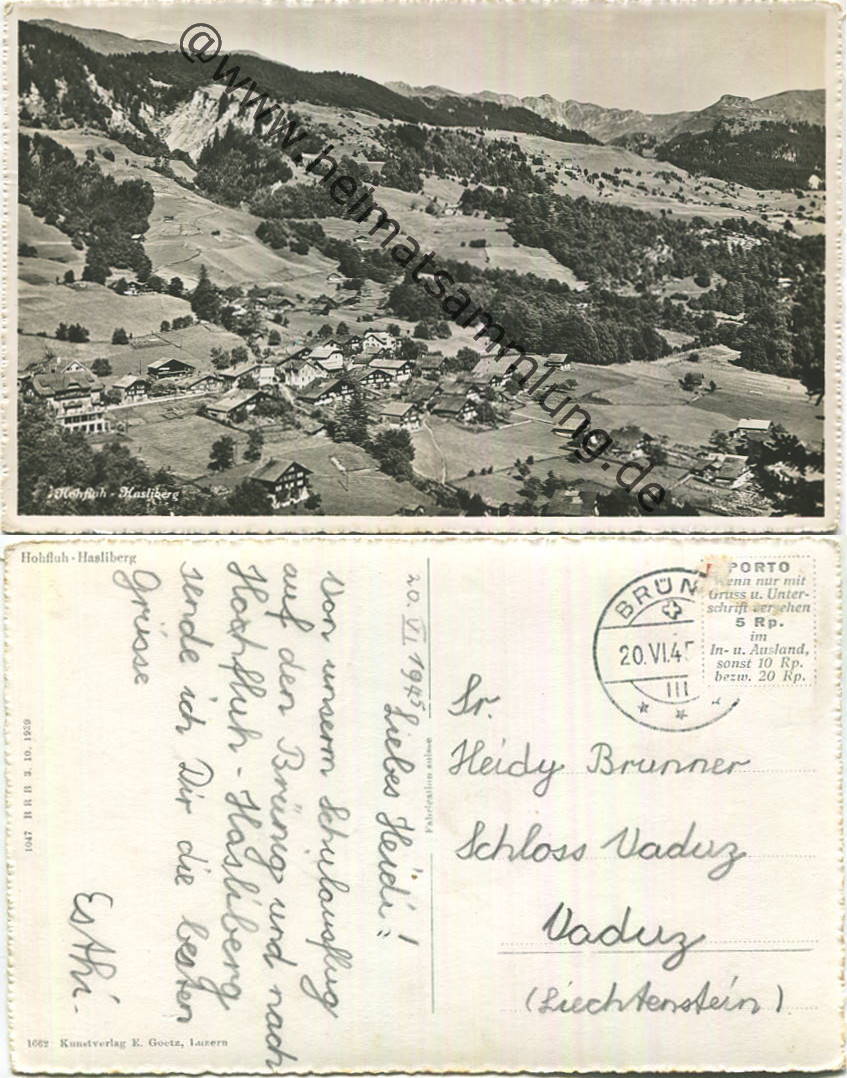 @www.heimatsammlung.de
Hohfluh - Hasliberg
Hohfluh - Hasliberg
20. VI. 1945
Liebes Heidi!
Von unserm Schulausflug
auf den Brünig und nach
Hochfluh - Hasliberg
sende ich Dir die besten
Grüsse
Esthi.
1047 B R B 3. 10. 1939
1662 Kunstverlag E. Goetz, Luzern
Fabrication suisse
BRÜN
20.VI.45
III
PORTO
Wenn nur mit
Gruss u. Unter-
schrift versehen
5 Rp.
im
In- u. Ausland,
sonst 10 Rp.
bezw. 20 Rp.
Fr.
Heidy Brunner
Schloss Vaduz
Vaduz
(Liechtenstein)